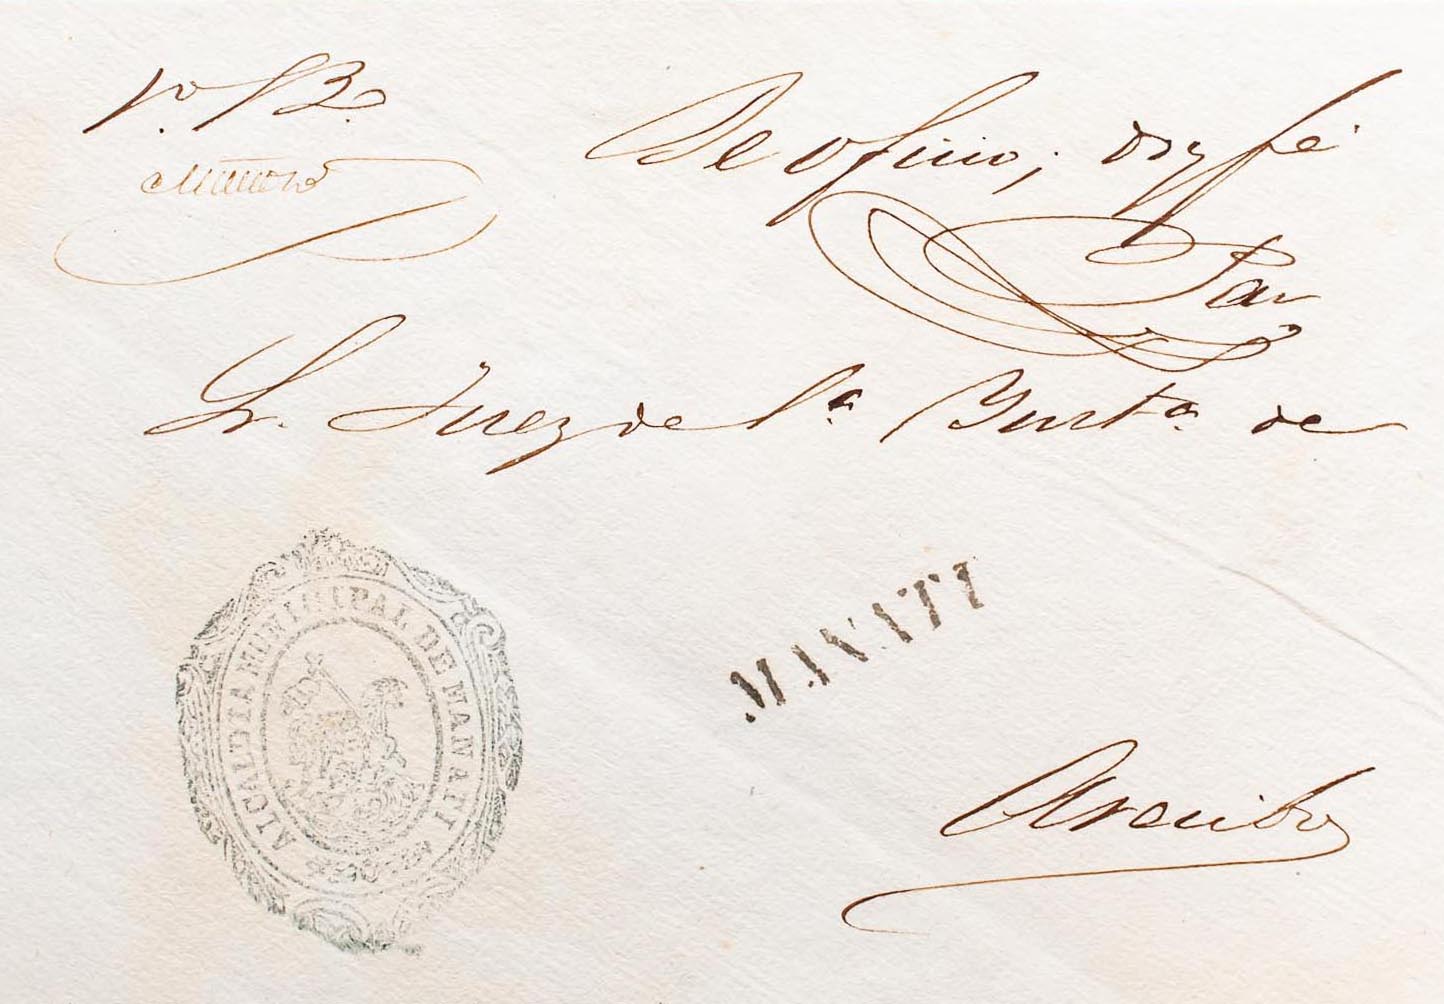 De oficio; doy fé
Sr. Juez de 1ª Instª de
ALCALDIA MUNICIPAL DE MANATI
MANATI
Arecibo